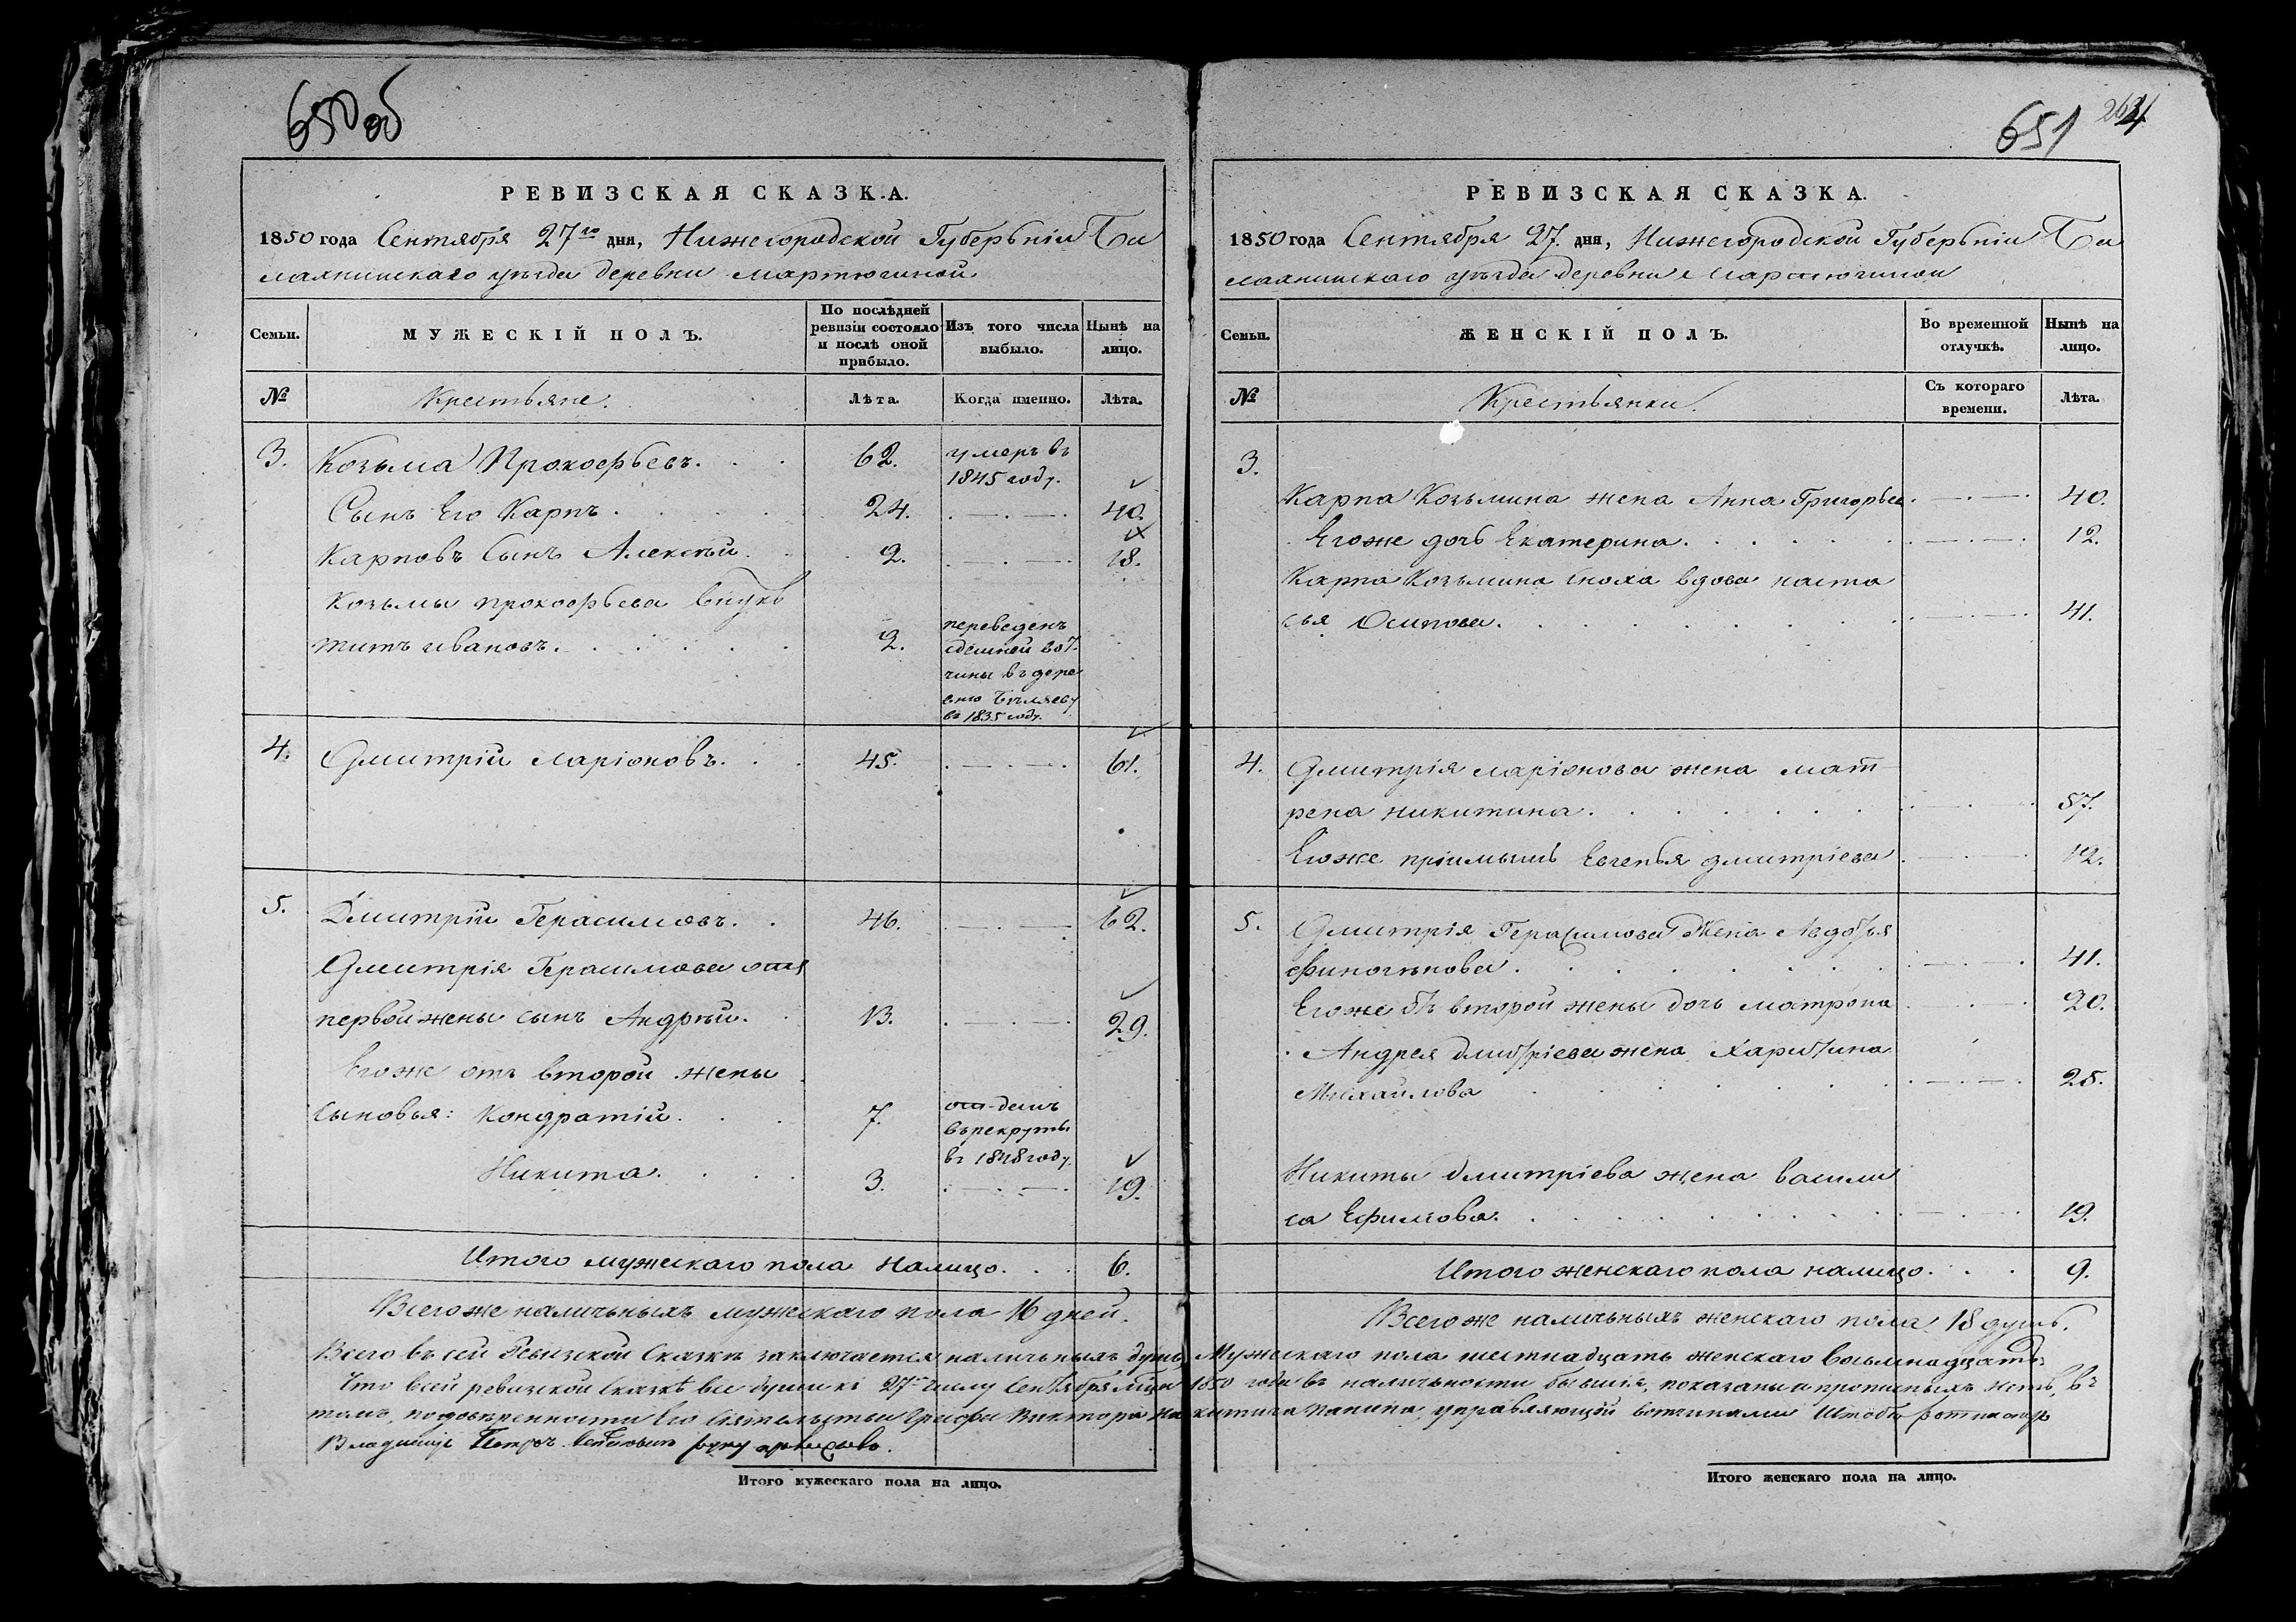 650 об
РЕВИЗСКАЯ СКАЗКА.
1850 года Сентября 27го дня, Нижегородской Губерьніи Ба
лахнинскаго уѣзда деревни Мартюгиной
Семьи.
МУЖЕСКІЙ ПОЛЪ.
По послѣдней ревизіи состояло и послѣ оной прибыло.
Изъ того числа выбыло.
Нынѣ на лицо.
№
Крестьяне.
Лѣта.
Когда именно.
Лѣта.
3. Козьма Прокофьевъ. 62. умеръ въ
1845 году.
Сынъ Его Карпъ. 24. 40.
Карповъ Сынъ Алексѣй. 2. 18.
Козьмы прокофьева внукъ
титъ ивановъ. 2. переведенъ
сдешней вот
чины въ дере
вню Бѣляеву
въ 1835 году.
4. Дмитрій ларіоновъ. 45. 61.
5. Дмитрій Герасимовъ. 46. 62.
Дмитрія Герасимова отъ
первой жены сынъ Андрѣй. 13. 29.
Егоже отъ второй жены
сыновья: Кондратій. 7. отденъ
въ рекруты
въ 1848 году.
Никита. 3. 19.
Итого мужескаго пола налицо. 6.
Всегоже наличьныхъ мужескаго пола 16 дней.
651 264
РЕВИЗСКАЯ СКАЗКА.
1850 года Сентября 27. дня, Нижегородской Губерьніи Ба
лахнинскаго уѣзда деревни Мартюгиной
Семьи.
ЖЕНСКІЙ ПОЛЪ.
Во временной отлучкѣ.
Нынѣ на лицо.
№
Крестьянки.
Съ котораго времени.
Лѣта.
3.
Карпа Козьмина жена Анна Григорьева 40.
Егоже дочь Екатерина. 12.
Карпа Козьмина сноха вдова наста
сья Осипова. 41.
4. Дмитрія ларіонова жена мат
рена никитина. 57.
Егоже пріимышь Евгенья дмитріева 12.
5. Дмитрія Герасимова Жена Авдотья
финогѣнова. 41.
Егоже отъ второй жены дочь матрона 20.
Андрея дмитріева жена Харитина
Михайлова 25.
Никиты дмитріева жена васили
са Ефимова. 19.
Итого женскаго пола налицо. 9.
Всегоже наличьныхъ женскаго пола 18 душь.
Всего въ сей Ревизской Сказкѣ заключается наличьныхъ душь Мужескаго пола шестнадцать женскаго восьмнадцать
Что всей ревизской сказкѣ все души къ 27му числу Сентября мца 1850 года въ наличьности бывшія, показаны и прописныхъ нетъ, въ
томъ, подовѣренности Его Сіятельства Графа Виктора Никитича Панина, управляющій вотчинами Штабъ ротмистръ
Владимиръ Петровъ руку приложилъ.
Итого мужескаго пола на лицо.
Итого женскаго пола на лицо.